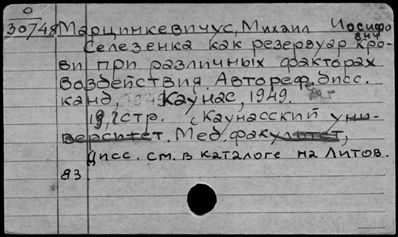 0
30748 Марцинкевичус, Михаил Иосифович
Селезенка как резервуар кро-
ви при различных факторах
воздействия. Автореф. дисс.
канд. Каунас, 1949.
19,2 стр. (Каунасский уни-
верситет. Мед. факультет,
Дисс. см. в каталоге на Литов.
83